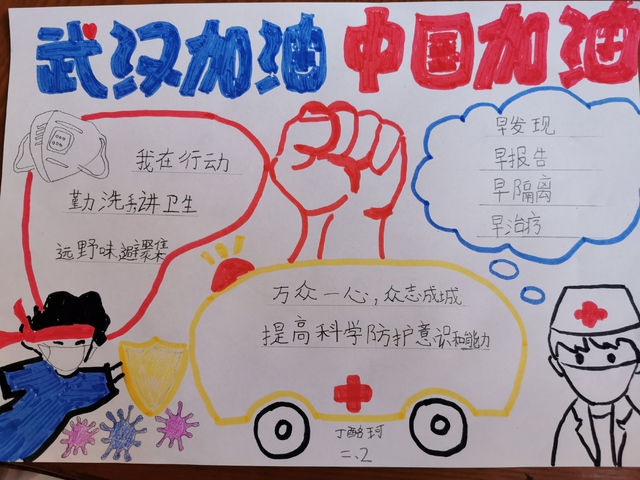 武汉加油 中国加油
我在行动
勤洗手讲卫生
远野味避聚集
早发现
早报告
早隔离
早治疗
万众一心,众志成城
提高科学防护意识和能力
丁酩珂
二.2